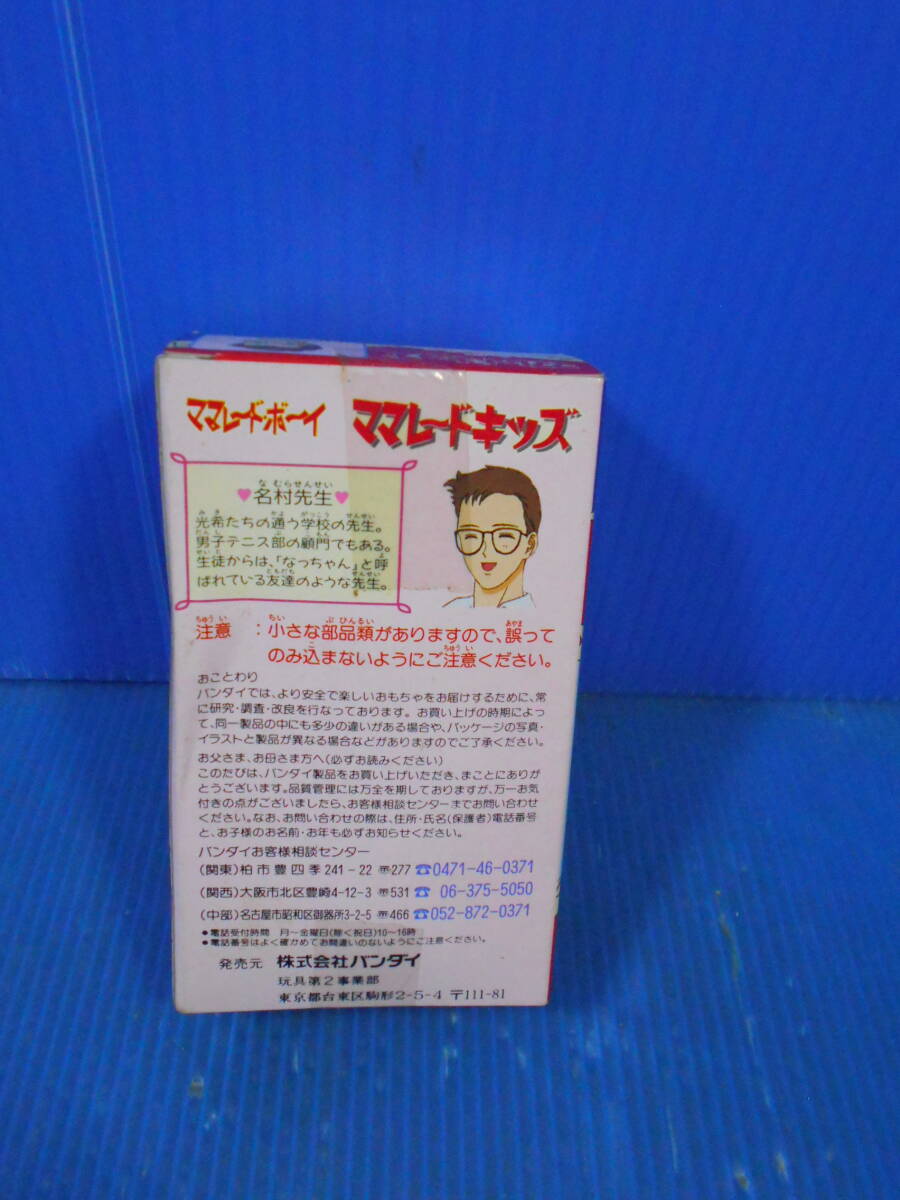 ママレード・ボーイ ママレードキッズ
なむらせんせい
♥名村先生♥
みき かよ がっこう せんせい
光希たちの通う学校の先生。
だんし ぶ こもん
男子テニス部の顧問でもある。
せいと よ
生徒からは、「なっちゃん」と呼
ともだち せんせい
ばれている友達のような先生。
ちゅうい ちい ぶひんるい あやま
注意 : 小さな部品類がありますので、誤って
こ ちゅうい
のみ込まないようにご注意ください。
おことわり
バンダイでは、より安全で楽しいおもちゃをお届けするために、常
に研究・調査・改良を行なっております。お買い上げの時期によっ
て、同一製品の中にも多少の違いがある場合や、パッケージの写真・
イラストと製品が異なる場合などがありますのでご了承ください。
お父さま、お母さま方へ(必ずお読みください)
このたびは、バンダイ製品をお買い上げいただき、まことにありが
とうございます。品質管理には万全を期しておりますが、万一お気
付きの点がございましたら、お客様相談センターまでお問い合わせ
ください。なお、お問い合わせの際は、住所・氏名(保護者)電話番号
と、お子様のお名前・お年も必ずお知らせください。
バンダイお客様相談センター
(関東)柏市豊四季241-22 〒277 ☎0471-46-0371
(関西)大阪市北区豊崎4-12-3 〒531 ☎06-375-5050
(中部)名古屋市昭和区御器所3-2-5 〒466 ☎052-872-0371
●電話受付時間 月〜金曜日(除く祝日)10〜16時
●電話番号はよく確かめてお間違いのないようにご注意ください。
発売元 株式会社バンダイ
玩具第2事業部
東京都台東区駒形2-5-4 〒111-81